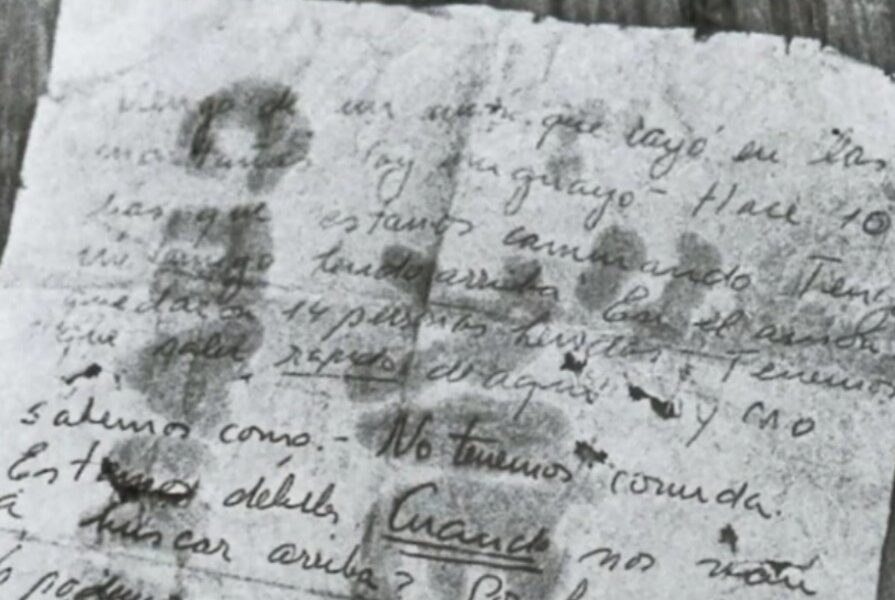 Vengo de un avión que cayó en las
montañas Soy uruguayo - Hace 10
días que estamos caminando Tengo
un amigo herido arriba En el avión
quedaron 14 personas heridas Tenemos
que salir rápido de aquí y no
sabemos como.- No tenemos comida.
Estamos débiles Cuando nos van
a buscar arriba?